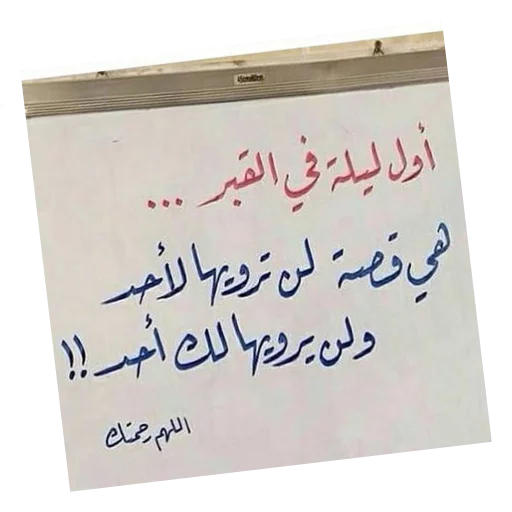 أول ليلة في القبر ...
هي قصة لن ترويها لأحد
ولن يرويها لك أحد !!
اللهم رحمتك